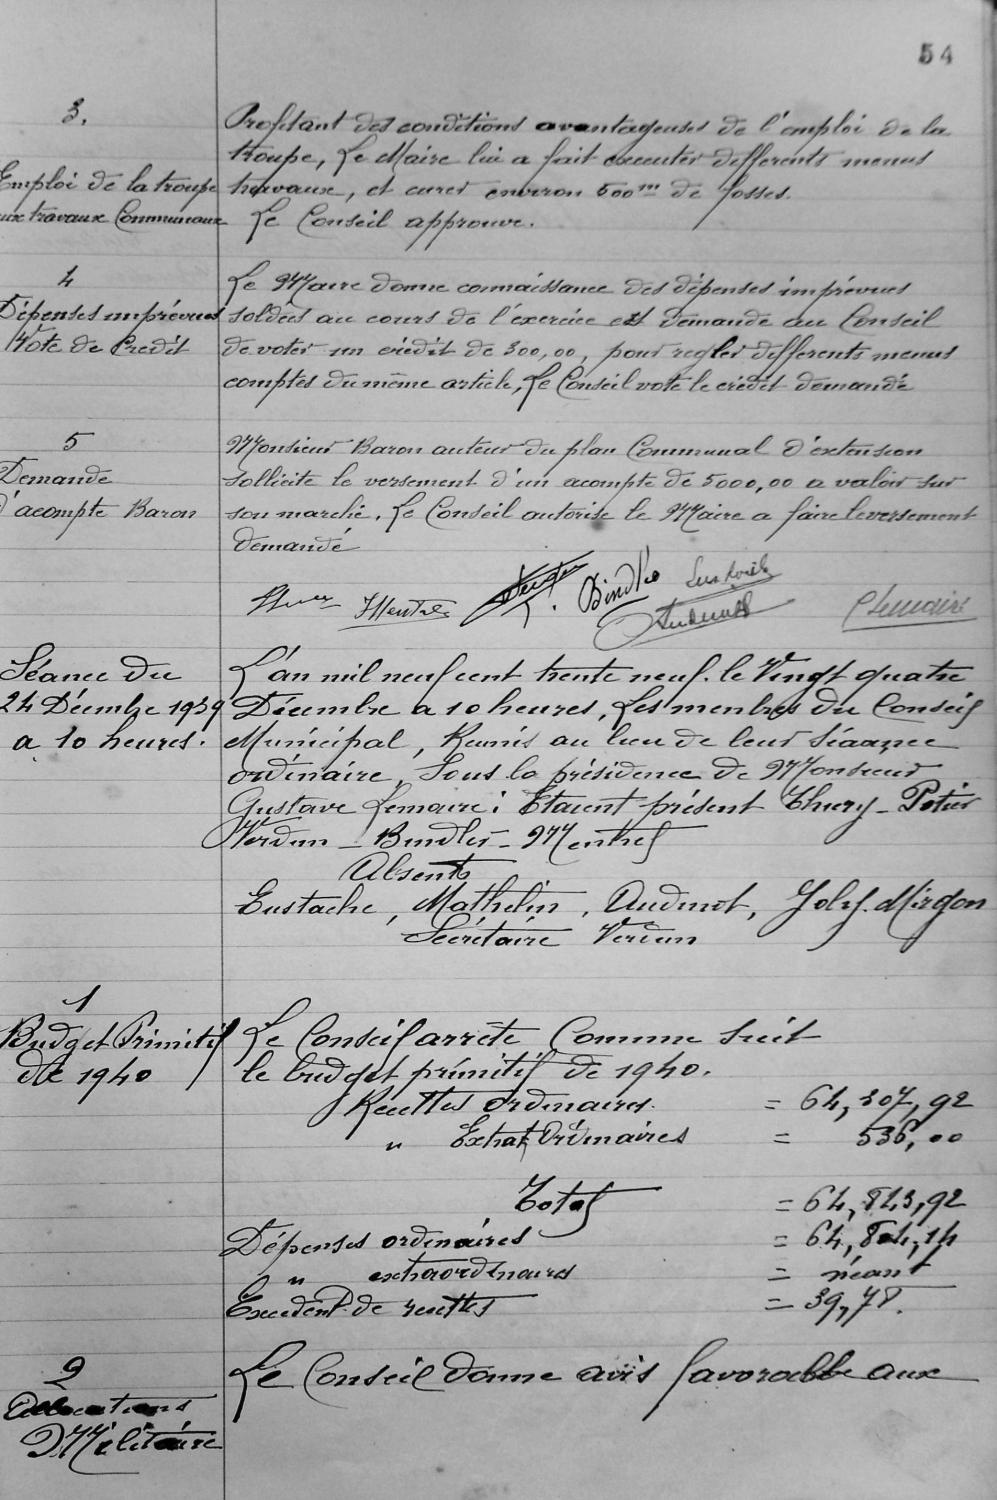 54
3.
Emploi de la troupe
aux travaux Communaux
Profitant des conditions avantageuses de l'emploi de la
troupe, Le Maire lui a fait executer differents menus
travaux, et curer environ 500m de fosses.
Le Conseil approuve.
4
Dépenses imprévues
Vote de Credit
Le Maire donne connaissance des dépenses imprévues
soldées au cours de l'éxercice et demande au Conseil
de voter un crédit de 300,00, pour regler differents menus
comptes du même article, Le Conseil vote le crédit demandé
5
Demande
d'acompte Baron
Monsieur Baron auteur du plan Communal d'extension
sollicite le versement d'un acompte de 5000,00 a valoir sur
son marché. Le Conseil autorise le Maire a faire le versement
demandé
Mentrel Bindler Eustache
Audinot CLemaire
Séance du
24 Décembre 1939
a 10 heures.
L'an mil neuf cent trente neuf. le Vingt quatre
Décembre a 10 heures, Les membres du Conseil
Municipal, Reunis au lieu de leur séaance
ordinaire, Sous la présidence de Monsieur
Gustave Lemaire : Etaient présent Thury - Potier
Verdun - Bindler - Mentrel
Absents
Eustache, Mathelin, Audinot, Joly. Mirgon
Secrétaire Verdun
1
Budget Primitif
de 1940
Le Conseil arrête Comme suit
le budget primitif de 1940.
Recettes ordinaires. = 64,307,92
" Extrat Ordinaires = 536,00
Total = 64,843,92
Dépenses ordinaires = 64,804,14
" extraordinaires = néant
Excedent de recettes = 39,78.
2
Allocations
Militaire
Le Conseil donne avis favorable aux